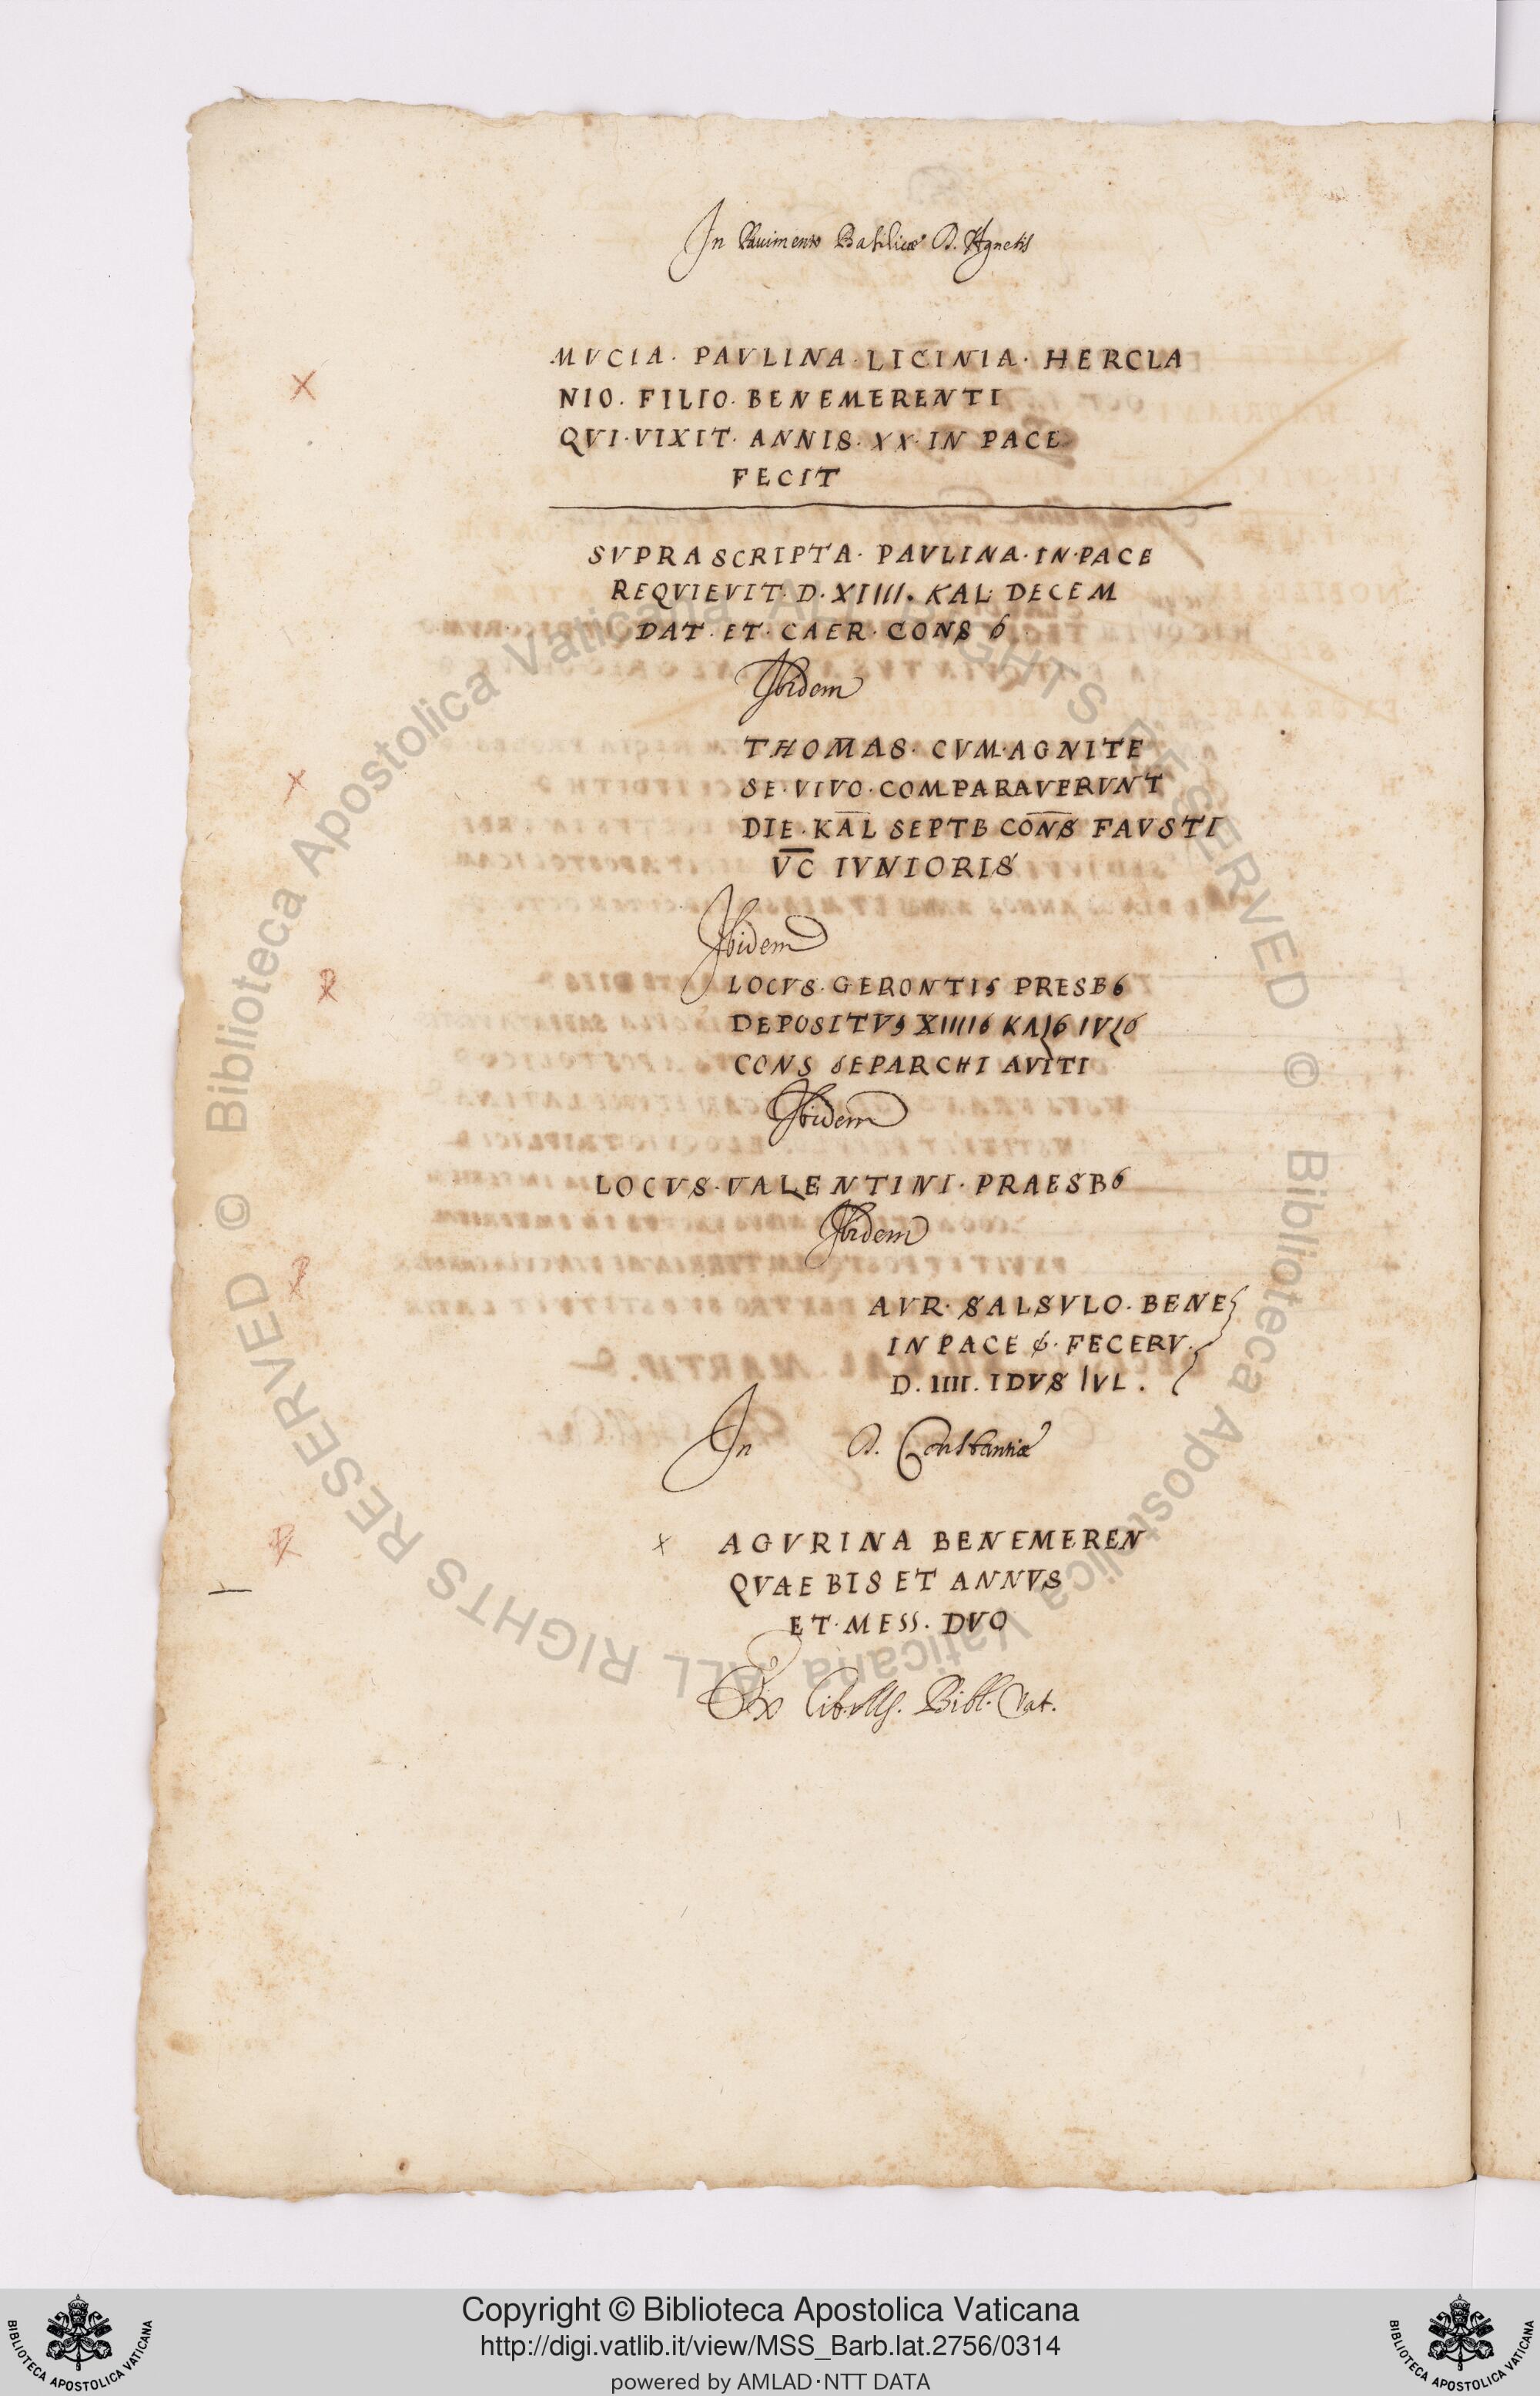 In Pauimento Basilicae D. Agnetis
MVCIA. PAVLINA. LICINIA. HERCLA
NIO. FILIO. BENEMERENTI
QVI. VIXIT. ANNIS. XX. IN PACE
FECIT
SVPRASCRIPTA. PAVLINA. IN. PACE
REQVIEVIT. D. XIIII. KAL. DECEM
DAT. ET. CAER. CONS
Ibidem
THOMAS. CVM. AGNITE
SE. VIVO. COMPARAVERVNT
DIE. KAL SEPTB CONS FAVSTI
VC IVNIORIS
Ibidem
LOCVS. GERONTIS PRESB
DEPOSITVS XIIII KAL IVL
CONS EPARCHI AVITI
Ibidem
LOCVS. VALENTINI. PRAESB
Ibidem
AVR. SALSVLO. BENE
IN PACE FECERV.
D. IIII. IDVS IVL.
In D. Constantiae
x AGVRINA BENEMEREN
QVAE BIS ET ANNVS
ET. MESS. DVO
Ex Lib. MS. Bibl. Vat.
Copyright © Biblioteca Apostolica Vaticana
http://digi.vatlib.it/view/MSS_Barb.lat.2756/0314
powered by AMLAD·NTT DATA